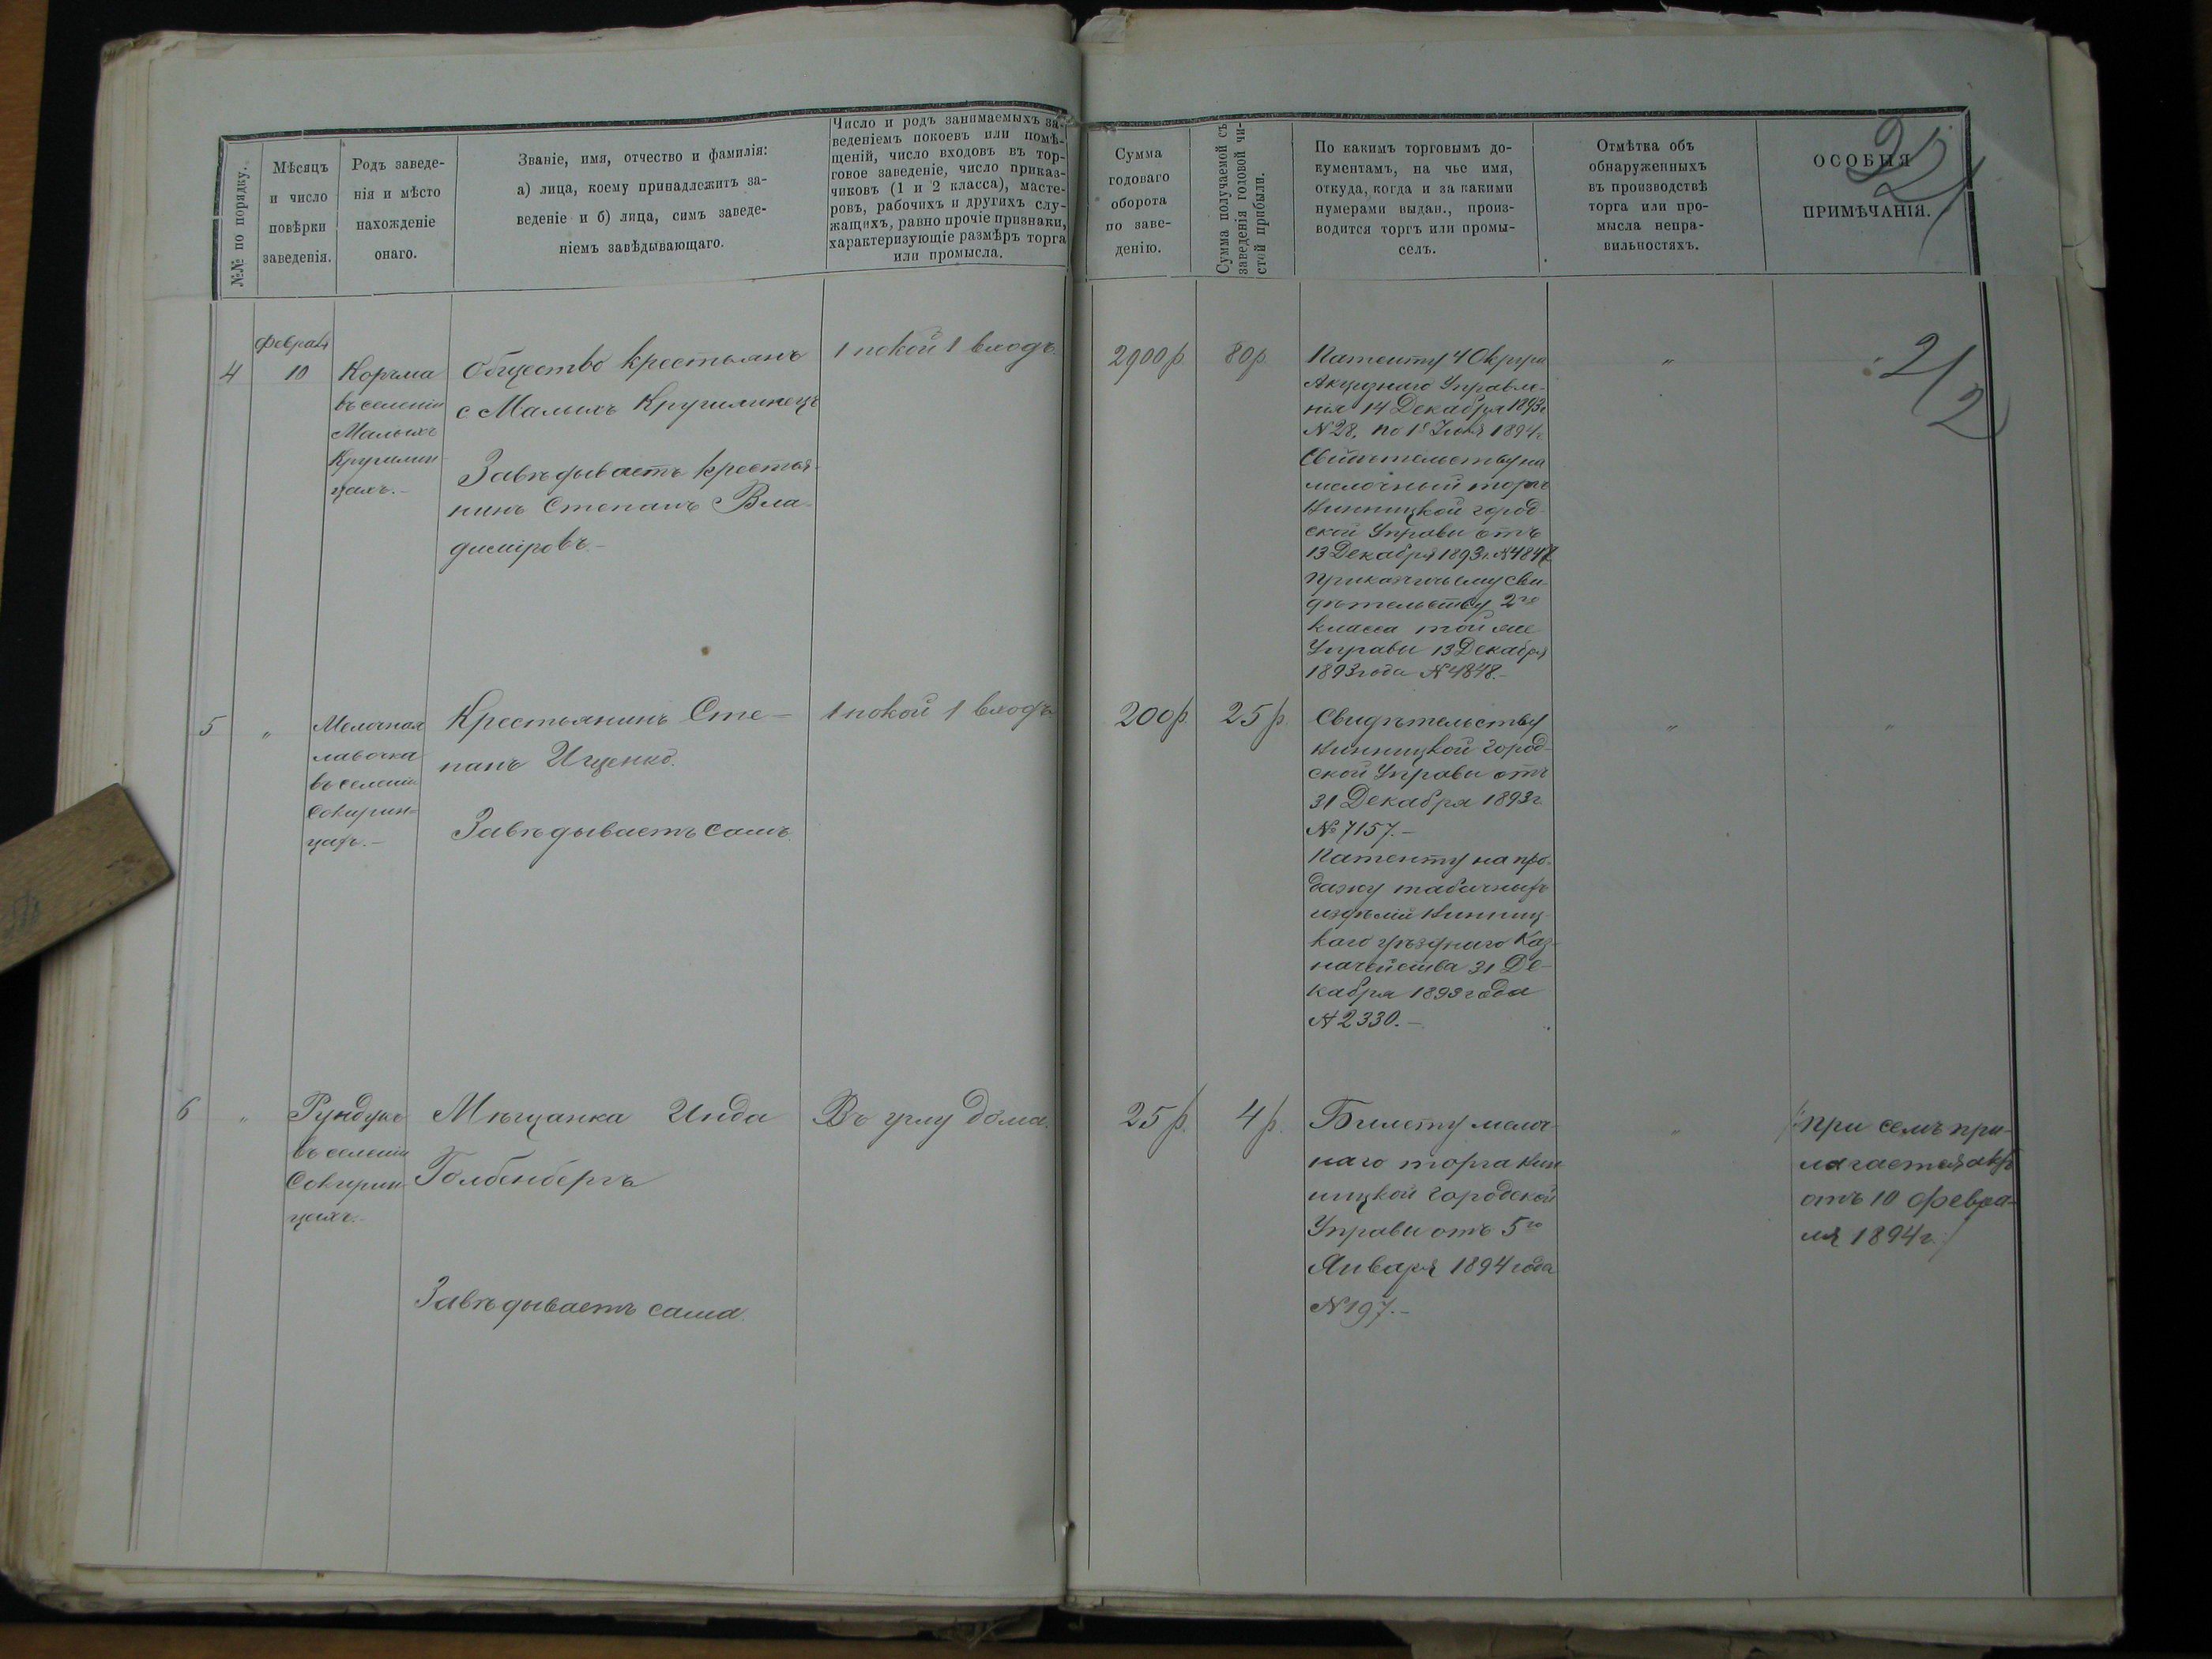 №№ по порядку.
Мѣсяцъ
и число
повѣрки
заведенія.
Родъ заведе-
нія и мѣсто
нахожденіе
онаго.
Званіе, имя, отчество и фамилія:
а) лица, коему принадлежитъ за-
веденіе и б) лица, симъ заведе-
ніемъ завѣдывающаго.
Число и родъ занимаемыхъ за-
веденіемъ покоевъ или помѣ-
щеній, число входовъ въ тор-
говое заведеніе, число приказ-
чиковъ (1 и 2 класса), масте-
ровъ, рабочихъ и другихъ слу-
жащихъ, равно прочіе признаки,
характеризующіе размѣръ торга
или промысла.
Сумма
годоваго
оборота
по заве-
денію.
Сумма получаемой съ
заведенія головой чи-
стой прибыли.
По какимъ торговымъ до-
кументамъ, на чье имя,
откуда, когда и за какими
нумерами выдан., произ-
водится торгъ или промы-
селъ.
Отмѣтка объ
обнаруженныхъ
въ производствѣ
торга или про-
мысла непра-
вильностяхъ.
ОСОБЫЯ
ПРИМѢЧАНІЯ.
4
Февраля
10
Корчма
въ селеніи
Малыхъ
Крушлин-
цахъ.-
Общество крестьянъ
с. Малыхъ Крушлинецъ
Завѣдываетъ крестья-
нинъ Степанъ Вла-
диміровъ.-
1 покой 1 входъ.
2900 р.
80 р.
Патенту 4 Округа
Акцизнаго Управле-
нія 14 Декабря 1893 г
№ 28. по 1е Іюля 1894 г.
Свидѣтельству на
мелочный торгъ
Винницкой город-
ской Управы отъ
13 Декабря 1893 г. № 4847
Прикащичьему сви-
дѣтельству 2го
класса той же
Управы 13 Декабря
1893 года № 4848.-
"
5
"
Мелочная
лавочка
въ селеніи
Сокирин-
цахъ.-
Крестьянинъ Сте-
панъ Ищенко.
Завѣдываетъ самъ.
1 покой 1 входъ
200 р.
25 р.
Свидѣтельству
Винницкой Город-
ской Управы отъ
31 Декабря 1893 г.
№ 7157.-
Патенту на про-
дажу табачныхъ
издѣлій Винниц-
каго уѣзднаго Каз-
начейства 31 Де-
кабря 1893 года
№ 2330.-
"
"
6
"
Рундукъ
въ селеніи
Сокирин-
цахъ.-
Мѣщанка Инда
Голбенбергъ
Завѣдываетъ сама.
Въ углу дома.
25 р.
4 р.
Билету мелоч-
наго торга Вин-
ницкой городской
Управы отъ 5го
Января 1894 года
№ 197.-
"
/При семъ при-
лагается актъ
отъ 10 Февра-
ля 1894 г./